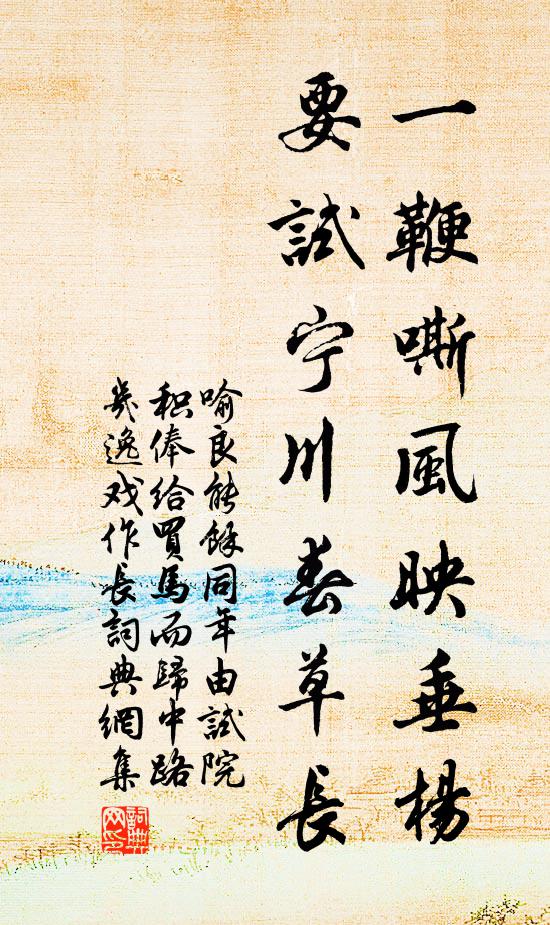 一鞭嘶風映垂楊
要試宁川春草長
喻良能餘同年由試院
积俸给買馬而歸中路
几逸戏作長詞典網集
詞典網印